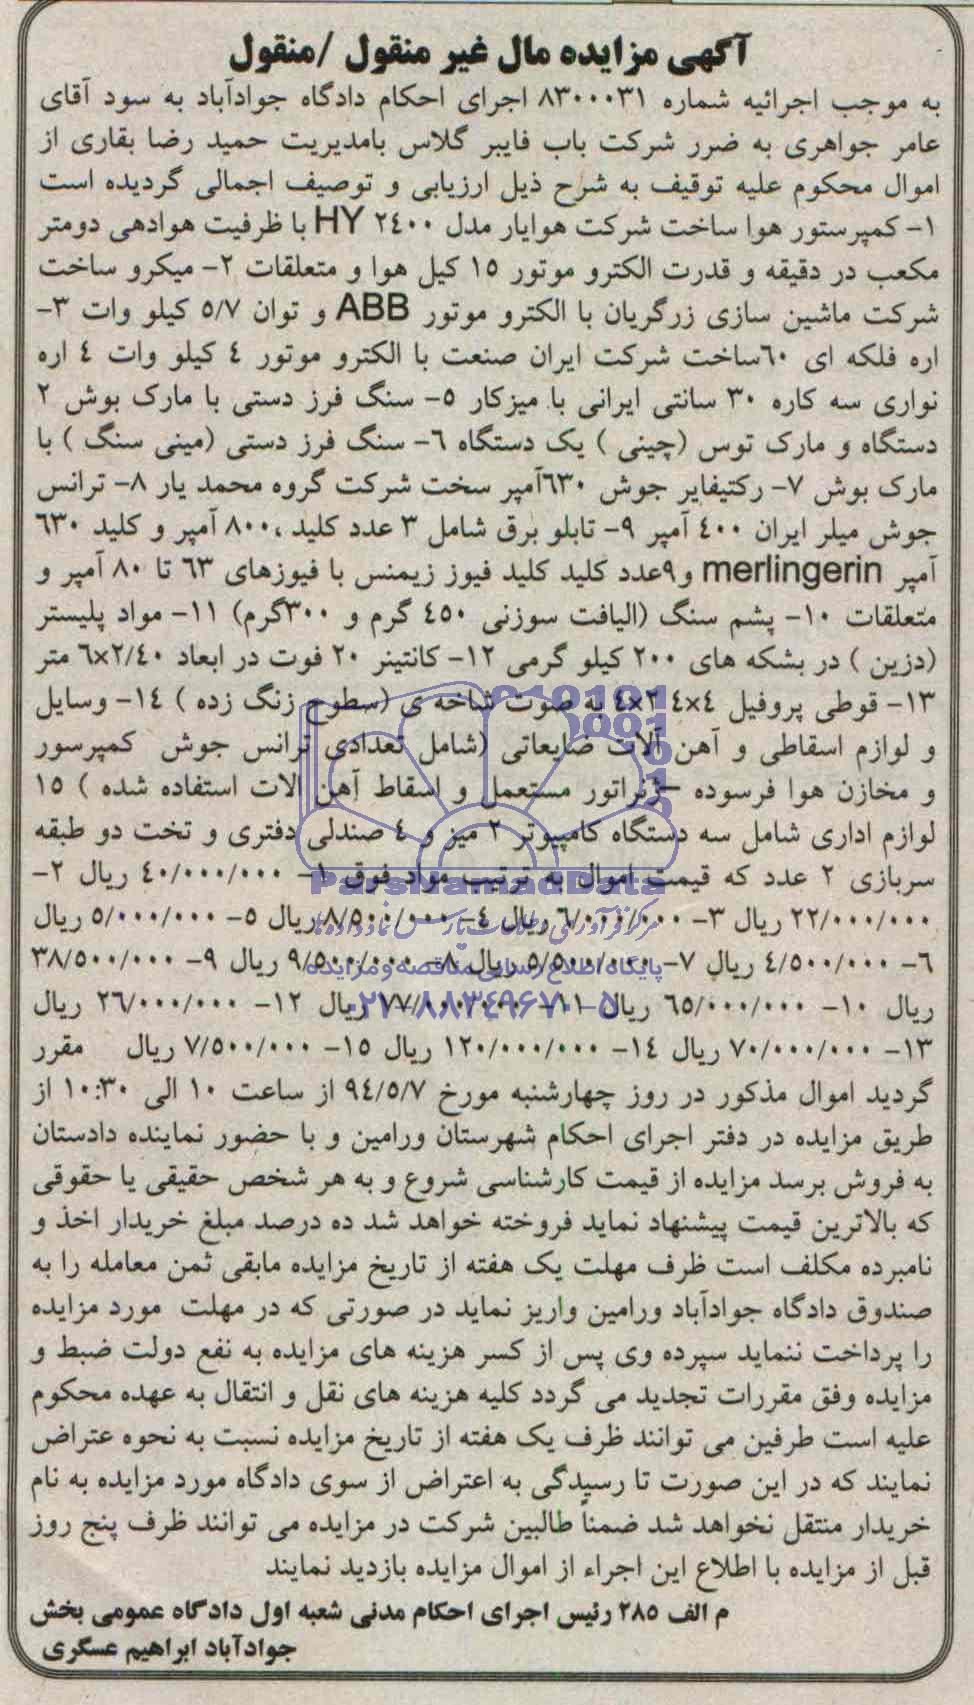 آگهی مزایده مال غیر منقول /منقول
به موجب اجرائیه شماره ۸۳۰۰۰۳۱ اجرای احکام دادگاه جوادآباد به سود آقای
عامر جواهری به ضرر شرکت باب فایبر گلاس بامدیریت حمید رضا بقاری از
اموال محکوم علیه توقیف به شرح ذیل ارزیابی و توصیف اجمالی گردیده است
۱- کمپرستور هوا ساخت شرکت هوایار مدل HY ۲٤۰۰ با ظرفیت هوادهی دومتر
مکعب در دقیقه و قدرت الکترو موتور ۱٥ کیل هوا و متعلقات ۲- میکرو ساخت
شرکت ماشین سازی زرگریان با الکترو موتور ABB و توان ٥/۷ کیلو وات ۳-
اره فلکه ای ٦۰ساخت شرکت ایران صنعت با الکترو موتور ٤ کیلو وات ٤ اره
نواری سه کاره ۳۰ سانتی ایرانی با میزکار ٥- سنگ فرز دستی با مارک بوش ۲
دستگاه و مارک توس (چینی ) یک دستگاه ٦- سنگ فرز دستی (مینی سنگ ) با
مارک بوش ۷- رکتیفایر جوش ٦۳۰آمپر سخت شرکت گروه محمد یار ۸- ترانس
جوش میلر ایران ٤۰۰ آمپر ۹- تابلو برق شامل ۳ عدد کلید ،۸۰۰ آمپر و کلید ٦۳۰
آمپر merlingerin و۹عدد کلید کلید فیوز زیمنس با فیوزهای ٦۳ تا ۸۰ آمپر و
متعلقات ۱۰- پشم سنگ (الیافت سوزنی ٤٥۰ گرم و ۳۰۰گرم) ۱۱- مواد پلیستر
(دزین ) در بشکه های ۲۰۰ کیلو گرمی ۱۲- کانتینر ۲۰ فوت در ابعاد ٦×۲/٤۰ متر
۱۳- قوطی پروفیل ٤×٤ ۲×٤ به صوت شاخه ی (سطوح زنگ زده ) ۱٤- وسایل
و لوازم اسقاطی و آهن آلات ضایعاتی (شامل تعدادی ترانس جوش کمپرسور
و مخازن هوا فرسوده –ژنراتور مستعمل و اسقاط آهن آلات استفاده شده ) ۱٥
لوازم اداری شامل سه دستگاه کامپیوتر ۲ میز و ٤ صندلی دفتری و تخت دو طبقه
سربازی ۲ عدد که قیمت اموال به ترتیب مواد فوق ۱- ٤۰/۰۰۰/۰۰۰ ریال ۲-
۲۲/۰۰۰/۰۰۰ ریال ۳- ٦/۰۰۰/۰۰۰ ریال ٤- ۸/٥۰۰/۰۰۰ریال ٥- ٥/۰۰۰/۰۰۰ ریال
٦- ٤/٥۰۰/۰۰۰ ریال ۷- ٥/٥۰۰/۰۰۰ ریال ۸- ۹/٥۰۰/۰۰۰ ریال ۹- ۳۸/٥۰۰/۰۰۰
ریال ۱۰- ٦٥/۰۰۰/۰۰۰ ریال ۱۱- ۷۷/۰۰۰/۰۰۰ ریال ۱۲- ۲٦/۰۰۰/۰۰۰ ریال
۱۳- ۷۰/۰۰۰/۰۰۰ ریال ۱٤- ۱۲۰/۰۰۰/۰۰۰ ریال ۱٥- ۷/٥۰۰/۰۰۰ ریال مقرر
گردید اموال مذکور در روز چهارشنبه مورخ ۹٤/٥/۷ از ساعت ۱۰ الی ۱۰:۳۰ از
طریق مزایده در دفتر اجرای احکام شهرستان ورامین و با حضور نماینده دادستان
به فروش برسد مزایده از قیمت کارشناسی شروع و به هر شخص حقیقی یا حقوقی
که بالاترین قیمت پیشنهاد نماید فروخته خواهد شد ده درصد مبلغ خریدار اخذ و
نامبرده مکلف است ظرف مهلت یک هفته از تاریخ مزایده مابقی ثمن معامله را به
صندوق دادگاه جوادآباد ورامین واریز نماید در صورتی که در مهلت مورد مزایده
را پرداخت ننماید سپرده وی پس از کسر هزینه های مزایده به نفع دولت ضبط و
مزایده وفق مقررات تجدید می گردد کلیه هزینه های نقل و انتقال به عهده محکوم
علیه است طرفین می توانند ظرف یک هفته از تاریخ مزایده نسبت به نحوه عتراض
نمایند که در این صورت تا رسیدگی به اعتراض از سوی دادگاه مورد مزایده به نام
خریدار منتقل نخواهد شد ضمناً طالبین شرکت در مزایده می توانند ظرف پنج روز
قبل از مزایده با اطلاع این اجراء از اموال مزایده بازدید نمایند
م الف ۲۸٥ رئیس اجرای احکام مدنی شعبه اول دادگاه عمومی بخش
جوادآباد ابراهیم عسگری
ParsNamadData
پایگاه اطلاع رسانی مناقصه و مزایده
۰۲۱-۸۸۳٤۹٦۷۰-٥